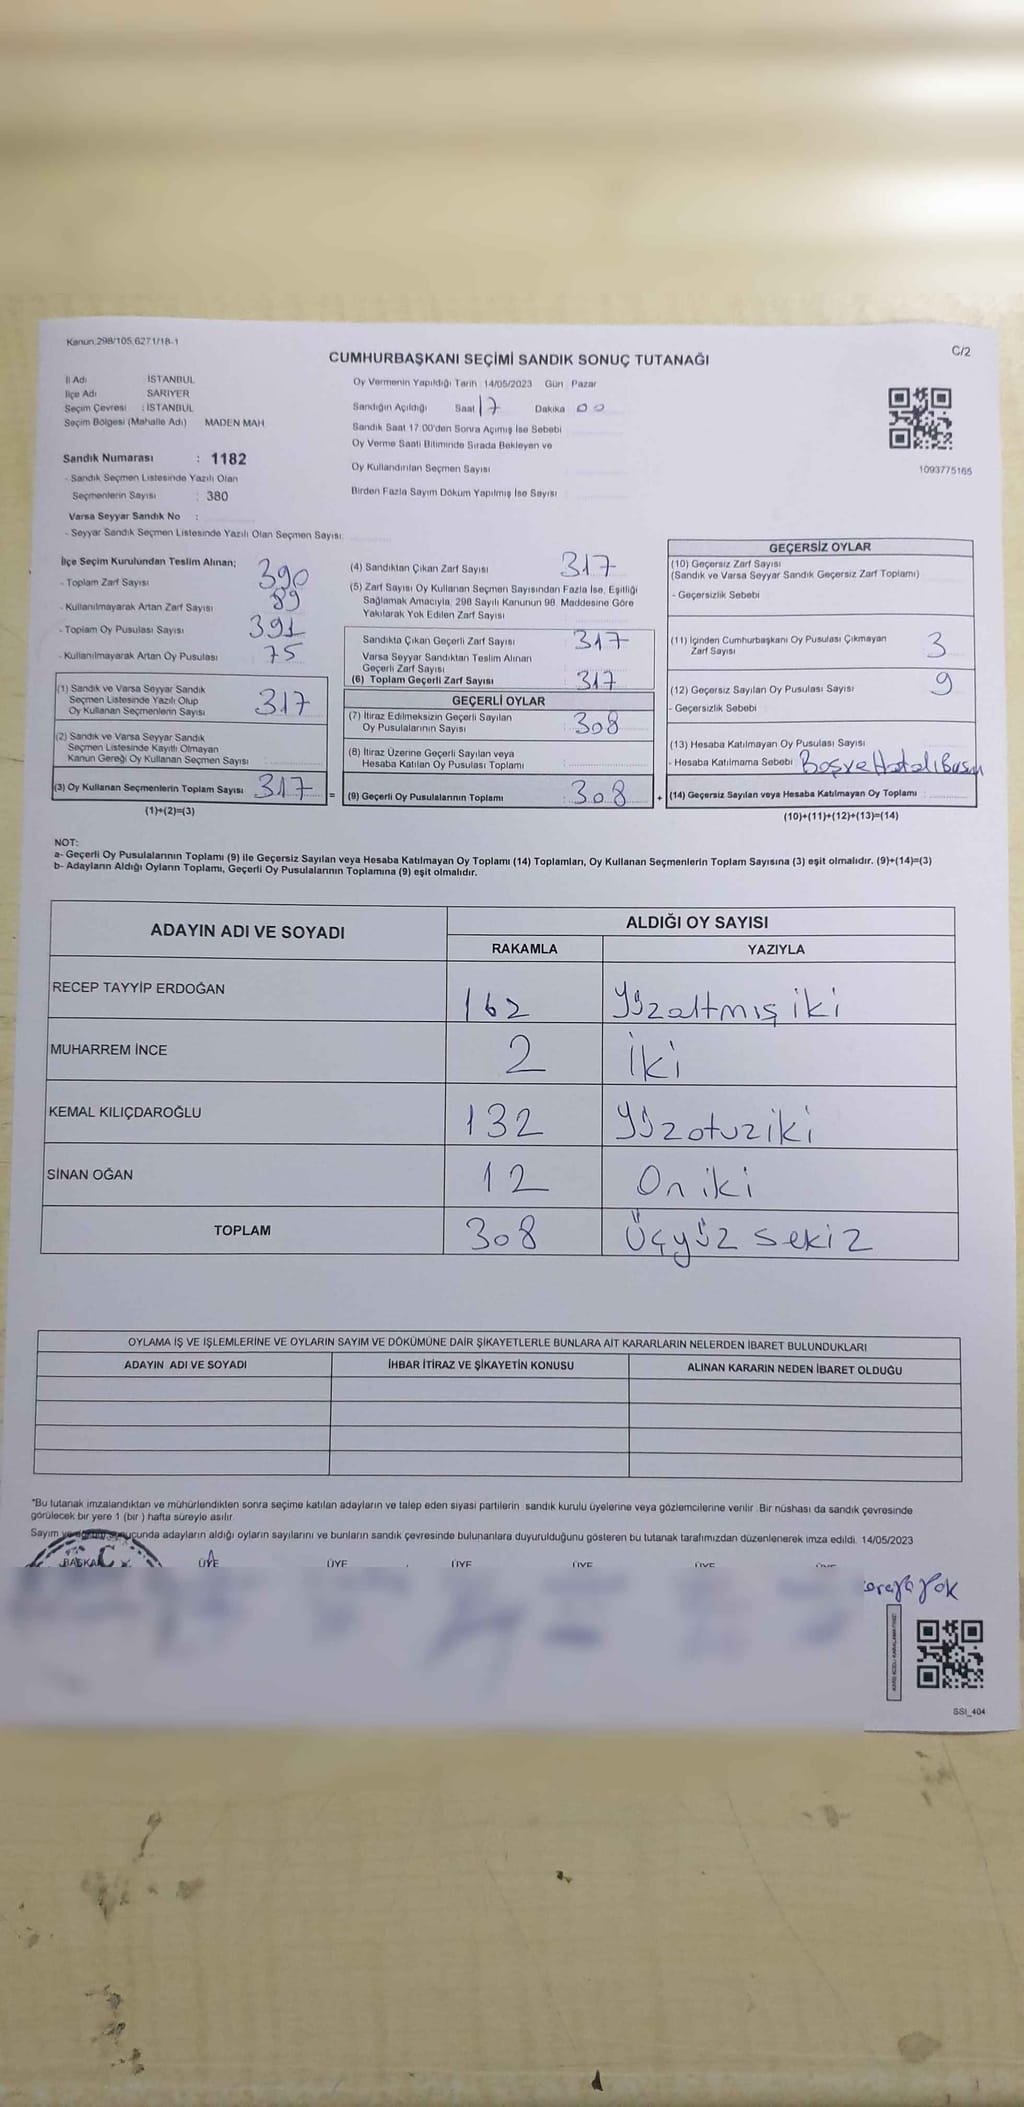 Kanun.298/105,6271/18-1
C/2
CUMHURBAŞKANI SEÇİMİ SANDIK SONUÇ TUTANAĞI
İl Adı İSTANBUL
İlçe Adı SARIYER
Seçim Çevresi : İSTANBUL
Seçim Bölgesi (Mahalle Adı) MADEN MAH.
Oy Vermenin Yapıldığı Tarih 14/05/2023 Gün Pazar
Sandığın Açıldığı Saat 17 Dakika 00
Sandık Saat 17:00'den Sonra Açımış İse Sebebi
Oy Verme Saati Bitiminde Sırada Bekleyen ve
Oy Kullandırılan Seçmen Sayısı
Birden Fazla Sayım Döküm Yapılmış İse Sayısı
1093775165
Sandık Numarası : 1182
- Sandık Seçmen Listesinde Yazılı Olan
Seçmenlerin Sayısı : 380
Varsa Seyyar Sandık No :
- Seyyar Sandık Seçmen Listesinde Yazılı Olan Seçmen Sayısı:
İlçe Seçim Kurulundan Teslim Alınan;
- Toplam Zarf Sayısı 390
- Kullanılmayarak Artan Zarf Sayısı 89
- Toplam Oy Pusulası Sayısı 391
- Kullanılmayarak Artan Oy Pusulası 75
(1) Sandık ve Varsa Seyyar Sandık
Seçmen Listesinde Yazılı Olup
Oy Kullanan Seçmenlerin Sayısı 317
(2) Sandık ve Varsa Seyyar Sandık
Seçmen Listesinde Kayıtlı Olmayan
Kanun Gereği Oy Kullanan Seçmen Sayısı
(3) Oy Kullanan Seçmenlerin Toplam Sayısı 317 =
(1)+(2)=(3)
(4) Sandıktan Çıkan Zarf Sayısı 317
(5) Zarf Sayısı Oy Kullanan Seçmen Sayısından Fazla İse, Eşitliği
Sağlamak Amacıyla, 298 Sayılı Kanunun 98. Maddesine Göre
Yakılarak Yok Edilen Zarf Sayısı
Sandıkta Çıkan Geçerli Zarf Sayısı 317
Varsa Seyyar Sandıktan Teslim Alınan
Geçerli Zarf Sayısı
(6) Toplam Geçerli Zarf Sayısı 317
GEÇERLİ OYLAR
(7) İtiraz Edilmeksizin Geçerli Sayılan
Oy Pusulalarının Sayısı 308
(8) İtiraz Üzerine Geçerli Sayılan veya
Hesaba Katılan Oy Pusulası Toplamı
(9) Geçerli Oy Pusulalarının Toplamı 308 +
GEÇERSİZ OYLAR
(10) Geçersiz Zarf Sayısı
(Sandık ve Varsa Seyyar Sandık Geçersiz Zarf Toplamı)
- Geçersizlik Sebebi
(11) İçinden Cumhurbaşkanı Oy Pusulası Çıkmayan
Zarf Sayısı 3
(12) Geçersiz Sayılan Oy Pusulası Sayısı 9
- Geçersizlik Sebebi
(13) Hesaba Katılmayan Oy Pusulası Sayısı
- Hesaba Katılmama Sebebi Boş ve Hatalı Basım
(14) Geçersiz Sayılan veya Hesaba Katılmayan Oy Toplamı :
(10)+(11)+(12)+(13)=(14)
NOT:
a- Geçerli Oy Pusulalarının Toplamı (9) ile Geçersiz Sayılan veya Hesaba Katılmayan Oy Toplamı (14) Toplamları, Oy Kullanan Seçmenlerin Toplam Sayısına (3) eşit olmalıdır. (9)+(14)=(3)
b- Adayların Aldığı Oyların Toplamı, Geçerli Oy Pusulalarının Toplamına (9) eşit olmalıdır.
ADAYIN ADI VE SOYADI ALDIĞI OY SAYISI
RAKAMLA YAZIYLA
RECEP TAYYİP ERDOĞAN 162 Yüzaltmış iki
MUHARREM İNCE 2 İki
KEMAL KILIÇDAROĞLU 132 Yüzotuziki
SİNAN OĞAN 12 On iki
TOPLAM 308 Üçyüz sekiz
OYLAMA İŞ VE İŞLEMLERİNE VE OYLARIN SAYIM VE DÖKÜMÜNE DAİR ŞİKAYETLERLE BUNLARA AİT KARARLARIN NELERDEN İBARET BULUNDUKLARI
ADAYIN ADI VE SOYADI İHBAR İTİRAZ VE ŞİKAYETİN KONUSU ALINAN KARARIN NEDEN İBARET OLDUĞU
"Bu tutanak imzalandıktan ve mühürlendikten sonra seçime katılan adayların ve talep eden siyasi partilerin sandık kurulu üyelerine veya gözlemcilerine verilir. Bir nüshası da sandık çevresinde
görülecek bir yere 1 (bir) hafta süreyle asılır.
Sayım ve sonucunda adayların aldığı oyların sayılarını ve bunların sandık çevresinde bulunanlara duyurulduğunu gösteren bu tutanak tarafımızdan düzenlenerek imza edildi. 14/05/2023
BAŞKAN ÜYE ÜYE ÜYE ÜYE ÜYE
Yok
SSI_404